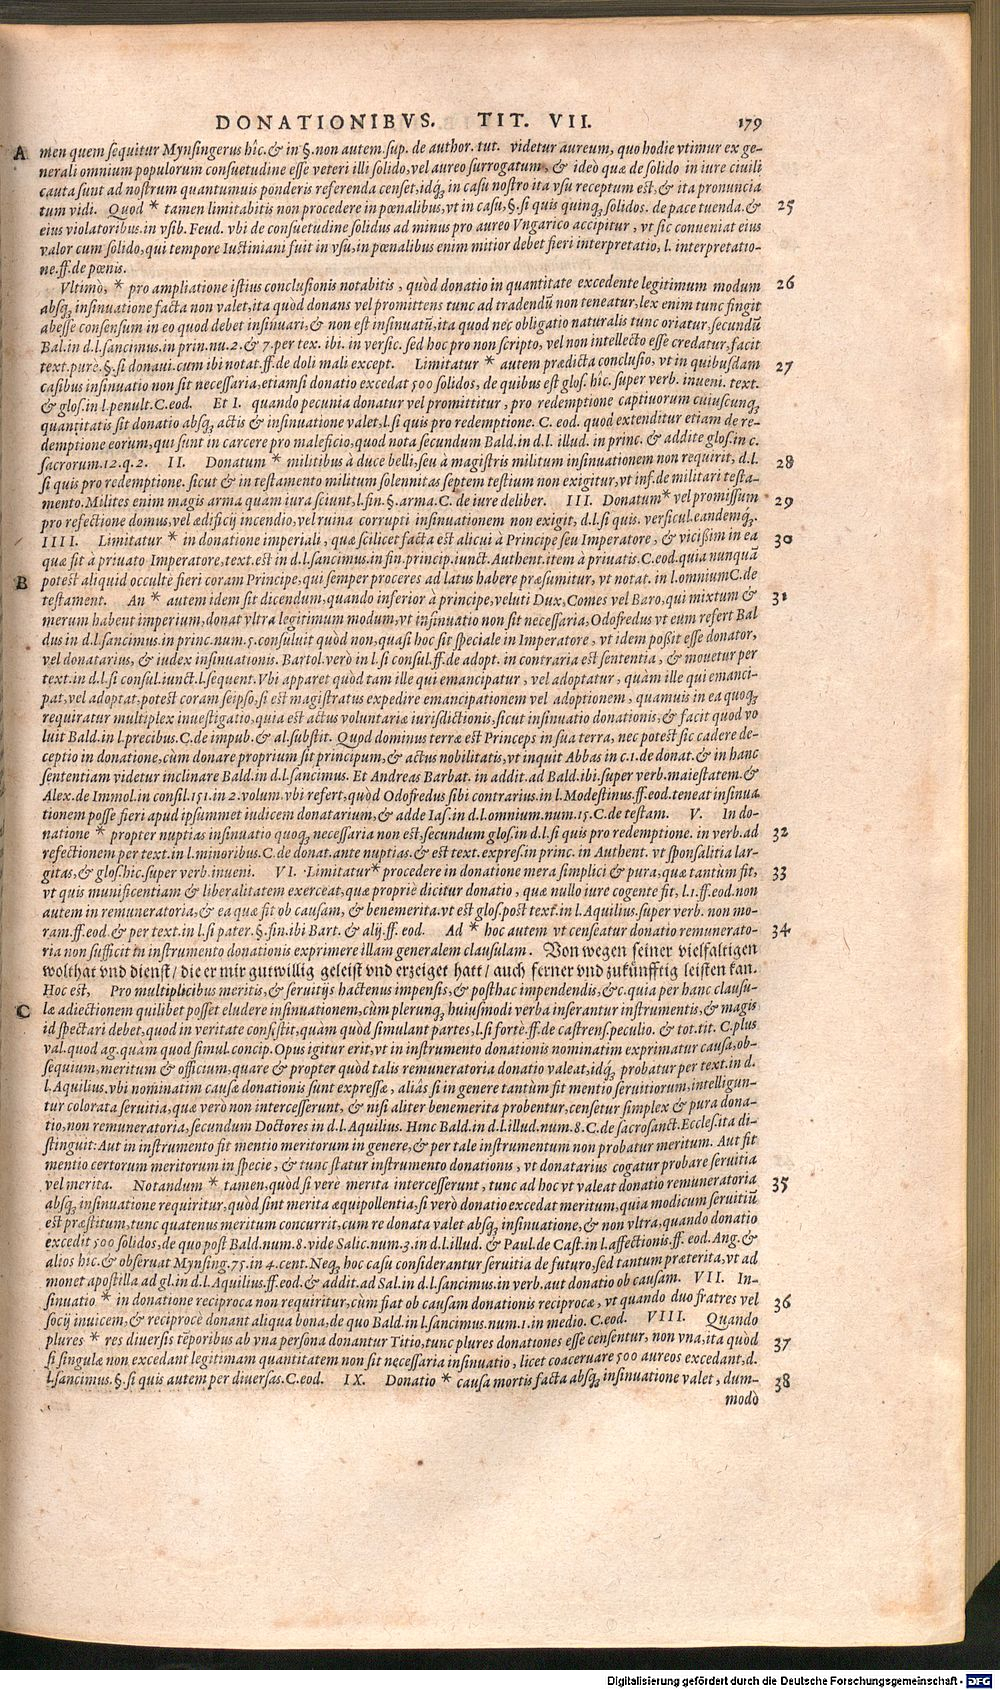 DONATIONIBVS. TIT. VII. 179
A men quem sequitur Mynsingerus hîc.& in §.non autem.sup. de author. tut. videtur aureum, quo hodie vtimur ex ge-
nerali omnium populorum consuetudine esse veteri illi solido, vel aureo surrogatum, & ideò quæ de solido in iure ciuili
cauta sunt ad nostrum quantumuis ponderis referenda censet, idq́; in casu nostro ita vsu receptum est, & ita pronuncia
tum vidi. Quod * tamen limitabitis non procedere in pœnalibus, vt in casu, §. si quis quinq; solidos. de pace tuenda. & 25
eius violatoribus. in vsib. Feud. vbi de consuetudine solidus ad minus pro aureo Vngarico accipitur, vt sic conueniat eius
valor cum solido, qui tempore Iustiniani fuit in vsu, in pœnalibus enim mitior debet fieri interpretatio, l. interpretatio-
ne.ff.de pœnis.
Vltimò, * pro ampliatione istius conclusionis notabitis, quòd donatio in quantitate excedente legitimum modum 26
absq; insinuatione facta non valet, ita quòd donans vel promittens tunc ad tradendũ non teneatur, lex enim tunc fingit
abesse consensum in eo quod debet insinuari, & non est insinuatũ, ita quod nec obligatio naturalis tunc oriatur. secundũ
Bal. in d.l. sancimus. in prin. nu. 2. & 7. per tex. ibi. in versic. sed hoc pro non scripto, vel non intellecto esse credatur, facit
text. purè. §. si donaui. cum ibi notat. ff. de doli mali except. Limitatur * autem prædicta conclusio, vt in quibusdam 27
casibus insinuatio non sit necessaria, etiamsi donatio excedat 500 solidos, de quibus est glos. hîc. super verb. inueni. text.
& glos. in l. penult. C. eod. Et I. quando pecunia donatur vel promittitur, pro redemptione captiuorum cuiuscunq;
quantitatis sit donatio absq; actis & insinuatione valet, l. si quis pro redemptione. C. eod. quod extenditur etiam de re-
demptione eorum, qui sunt in carcere pro maleficio, quod nota secundum Bald. in d. l. illud. in princ. & addite glos. in c.
sacrorum. 12. q. 2. II. Donatum * militibus à duce belli, seu à magistris militum insinuationem non requirit, d. l. 28
si quis pro redemptione. sicut & in testamento militum solennitas septem testium non exigitur, vt inf. de militari testa-
mento. Milites enim magis arma quam iura sciunt, l. fin. §. arma. C. de iure deliber. III. Donatum * vel promissum 29
pro refectione domus, vel ædificij incendio, vel ruina corrupti insinuationem non exigit, d. l. si quis. versicul. eandemq́;.
IIII. Limitatur * in donatione imperiali, quæ scilicet facta est alicui à Principe seu Imperatore, & vicissim in ea 30
quæ fit à priuato Imperatore, text. est in d. l. sancimus. in fin. princip. iunct. Authent. item à priuatis. C. eod. quia nunquã
B potest aliquid occultè fieri coram Principe, qui semper proceres ad latus habere præsumitur, vt notat. in l. omnium C. de
testament. An * autem idem sit dicendum, quando inferior à principe, veluti Dux, Comes vel Baro, qui mixtum & 31
merum habent imperium, donat vltra legitimum modum, vt insinuatio non sit necessaria, Odofredus vt eum refert Bal
dus in d. l. sancimus. in princ. num. 5. consuluit quòd non, quasi hoc sit speciale in Imperatore, vt idem poßit esse donator,
vel donatarius, & iudex insinuationis. Bartol. verò in l. si consul. ff. de adopt. in contraria est sententia, & mouetur per
text. in d. l. si consul. iunct. l. sequent. Vbi apparet quòd tam ille qui emancipatur, vel adoptatur, quàm ille qui emanci-
pat, vel adoptat, potest coram seipso, si est magistratus expedire emancipationem vel adoptionem, quamuis in ea quoq;
requiratur multiplex inuestigatio, quia est actus voluntariæ iurisdictionis, sicut insinuatio donationis, & facit quod vo
luit Bald. in l. precibus. C. de impub. & al. substit. Quod dominus terræ est Princeps in sua terra, nec potest sic cadere de-
ceptio in donatione, cùm donare proprium sit principum, & actus nobilitatis, vt inquit Abbas in c. 1. de donat. & in hanc
sententiam videtur inclinare Bald. in d. l. sancimus. Et Andreas Barbat. in addit. ad Bald. ibi. super verb. maiestatem. &
Alex. de Immol. in consil. 151. in 2. volum. vbi refert, quòd Odofredus sibi contrarius. in l. Modestinus. ff. eod. teneat insinua
tionem posse fieri apud ipsummet iudicem donatarium, & adde Ias. in d. l. omnium. num. 15. C. de testam. V. In do-
natione * propter nuptias insinuatio quoq; necessaria non est, secundum glos. in d. l. si quis pro redemptione. in verb. ad 32
refectionem per text. in l. minoribus. C. de donat. ante nuptias. & est text. expres. in princ. in Authent. vt sponsalitia lar-
gitas, & glos. hîc. super verb. inueni. VI. Limitatur * procedere in donatione mera simplici & pura, quæ tantùm fit, 33
vt quis munificentiam & liberalitatem exerceat, quæ propriè dicitur donatio, quæ nullo iure cogente fit, l. 1. ff. eod. non
autem in remuneratoria, & ea quæ fit ob causam, & benemerita. vt est glos. post text. in l. Aquilius. super verb. non mo-
ram. ff. eod. & per text. in l. si pater. §. fin. ibi Bart. & alij. ff. eod. Ad * hoc autem vt censeatur donatio remunerato- 34
ria non sufficit in instrumento donationis exprimere illam generalem clausulam. Von wegen seiner vielfaltigen
wolthat vnd dienst / die er mir gutwillig geleist vnd erzeiget hatt / auch ferner vnd zukünfftig leisten kan.
Hoc est, Pro multiplicibus meritis, & seruitijs hactenus impensis, & posthac impendendis, &c. quia per hanc clausu-
C læ adiectionem quilibet posset eludere insinuationem, cùm plerunq; huiusmodi verba inserantur instrumentis, & magis
id spectari debet, quod in veritate consistit, quàm quòd simulant partes, l. si fortè. ff. de castrens. peculio. & tot. tit. C. plus
val. quod ag. quàm quod simul. concip. Opus igitur erit, vt in instrumento donationis nominatim exprimatur causa, ob-
sequium, meritum & officium, quare & propter quòd talis remuneratoria donatio valeat, idq; probatur per text. in d.
l. Aquilius. vbi nominatim causæ donationis sunt expressæ, aliâs si in genere tantùm fit mentio seruitiorum, intelligun-
tur colorata seruitia, quæ verò non intercesserunt, & nisi aliter benemerita probentur, censetur simplex & pura dona-
tio, non remuneratoria, secundum Doctores in d. l. Aquilius. Hinc Bald. in d. l. illud. num. 8. C. de sacrosanct. Eccles. ita di-
stinguit: Aut in instrumento fit mentio meritorum in genere, & per tale instrumentum non probatur meritum. Aut fit
mentio certorum meritorum in specie, & tunc statur instrumento donationis, vt donatarius cogatur probare seruitia
vel merita. Notandum * tamen, quòd si verè merita intercesserunt, tunc ad hoc vt valeat donatio remuneratoria 35
absq; insinuatione requiritur, quòd sint merita æquipollentia, si verò donatio excedat meritum, quia modicum seruitiũ
est præstitum, tunc quatenus meritum concurrit, cum re donata valet absq; insinuatione, & non vltra, quando donatio
excedit 500 solidos, de quo post Bald. num. 8. vide Salic. num. 3. in d. l. illud. & Paul. de Cast. in l. affectionis. ff. eod. Ang. &
alios hîc. & obseruat Mynsing. 75. in 4. cent. Neq; hoc casu considerantur seruitia de futuro, sed tantum præterita, vt ad
monet apostilla ad gl. in d. l. Aquilius. ff. eod. & addit. ad Sal. in d. l. sancimus. in verb. aut donatio ob causam. VII. In-
sinuatio * in donatione reciproca non requiritur, cùm fiat ob causam donationis reciprocæ, vt quando duo fratres vel 36
socij inuicem, & reciprocè donant aliqua bona, de quo Bald. in l. sancimus. num. 1. in medio. C. eod. VIII. Quando
plures * res diuersis tẽporibus ab vna persona donantur Titio, tunc plures donationes esse censentur, non vna, ita quòd 37
si singulæ non excedant legitimam quantitatem non sit necessaria insinuatio, licet coaceruare 500 aureos excedant, d.
l. sancimus. §. si quis autem per diuersas. C. eod. IX. Donatio * causa mortis facta absq; insinuatione valet, dum- 38
modò
Digitalisierung gefördert durch die Deutsche Forschungsgemeinschaft - DFG